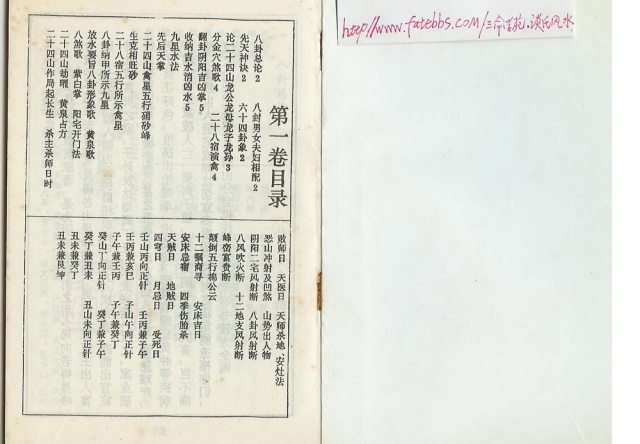 http://www.fatebbs.com/三命谈苑。谈氏风水
第一卷目录
八卦总论2 八封男女夫妇相配2
先天神诀2 六十四卦象2
论二十四山龙公龙母龙子龙孙3
分金穴煞歌4 二十八宿演禽4
翻卦阴阳吉凶掌5
收纳吉水消凶水5
九星水法
先后天掌
二十四山禽星五行硝砂峰
生克相旺砂
二十八宿五行所示禽星
八卦纳甲所示九星
放水要旨八卦形象歌 黄泉歌
八煞歌 紫白掌 阳宅开门法
二十四山劫曜 黄泉占方
二十四山作局起长生 杀主杀师日时
败师日 天医日 天师杀地、安灶法
恶山冲射及凹煞 山势出人物
阴阳二宅风射断 八卦风射断
八风吹火断 十二地支风射断
峰峦富贵断
颠倒五行杨公云
十二嘱商寻 安床吉日
安床忌宿 四季伤胎杀
天贼日 地贼日
四穷日 月忌日 受死日
壬山丙向正针 壬丙兼子午
壬丙兼亥巳 子山午向正针
子午兼壬丙 子午兼癸丁
癸山丁向正针 癸丁兼子午
癸丁兼丑未 丑山未向正针
丑未兼癸丁
丑未兼艮坤